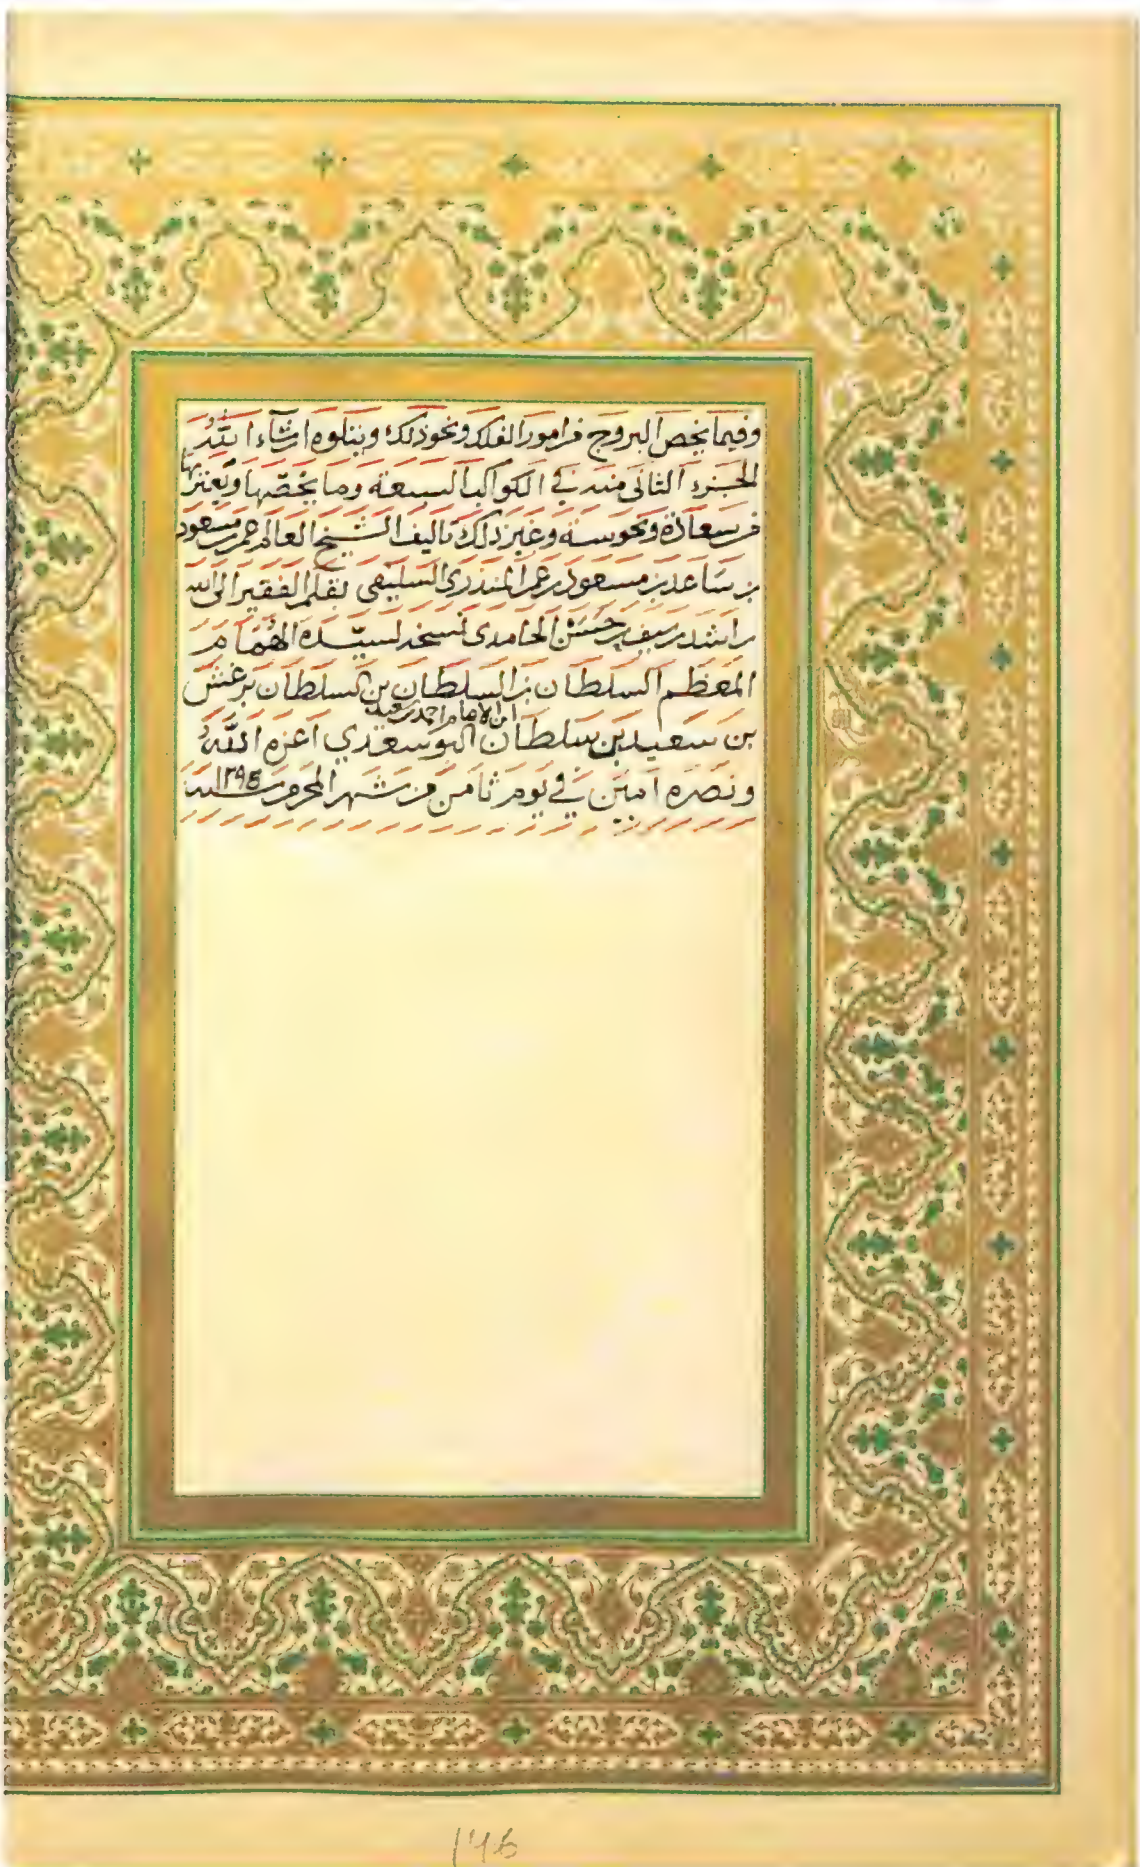 وفيما يخص البروج من امور الفلك ونحو ذلك ويتلوه ان شاء الله
الجزء الثاني منه في الكواكب السبعة وما يخصها ويعتريها
من سعادة ونحوسة وغير ذلك تاليف الشيخ العالم عمر بن مسعود
بن ساعد بن مسعود بن عمر المنذري السليفي بقلم الفقير الى الله
راشد بن سيف بن حسن الحامدي نسخه لسيده الهمام
المعظم السلطان بن السلطان بن السلطان برغش
بن سعيد بن سلطان ابن الامام احمد بن سعيد البوسعيدي اعزه الله
ونصره امين في يوم ثامن من شهر المحرم سنة
١٤٦